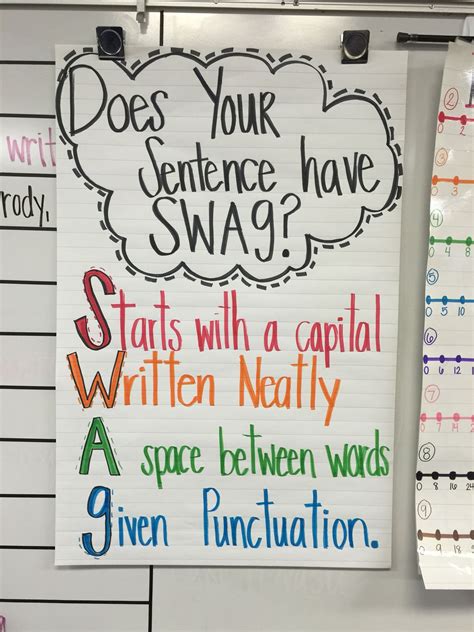 Does Your
Sentence have
SWAg?
Starts with a capital
Written Neatly
A space between words
given Punctuation.
writ
rody,
②
0 4 8
0 5 10
⑧
0 8 16 24
⑨